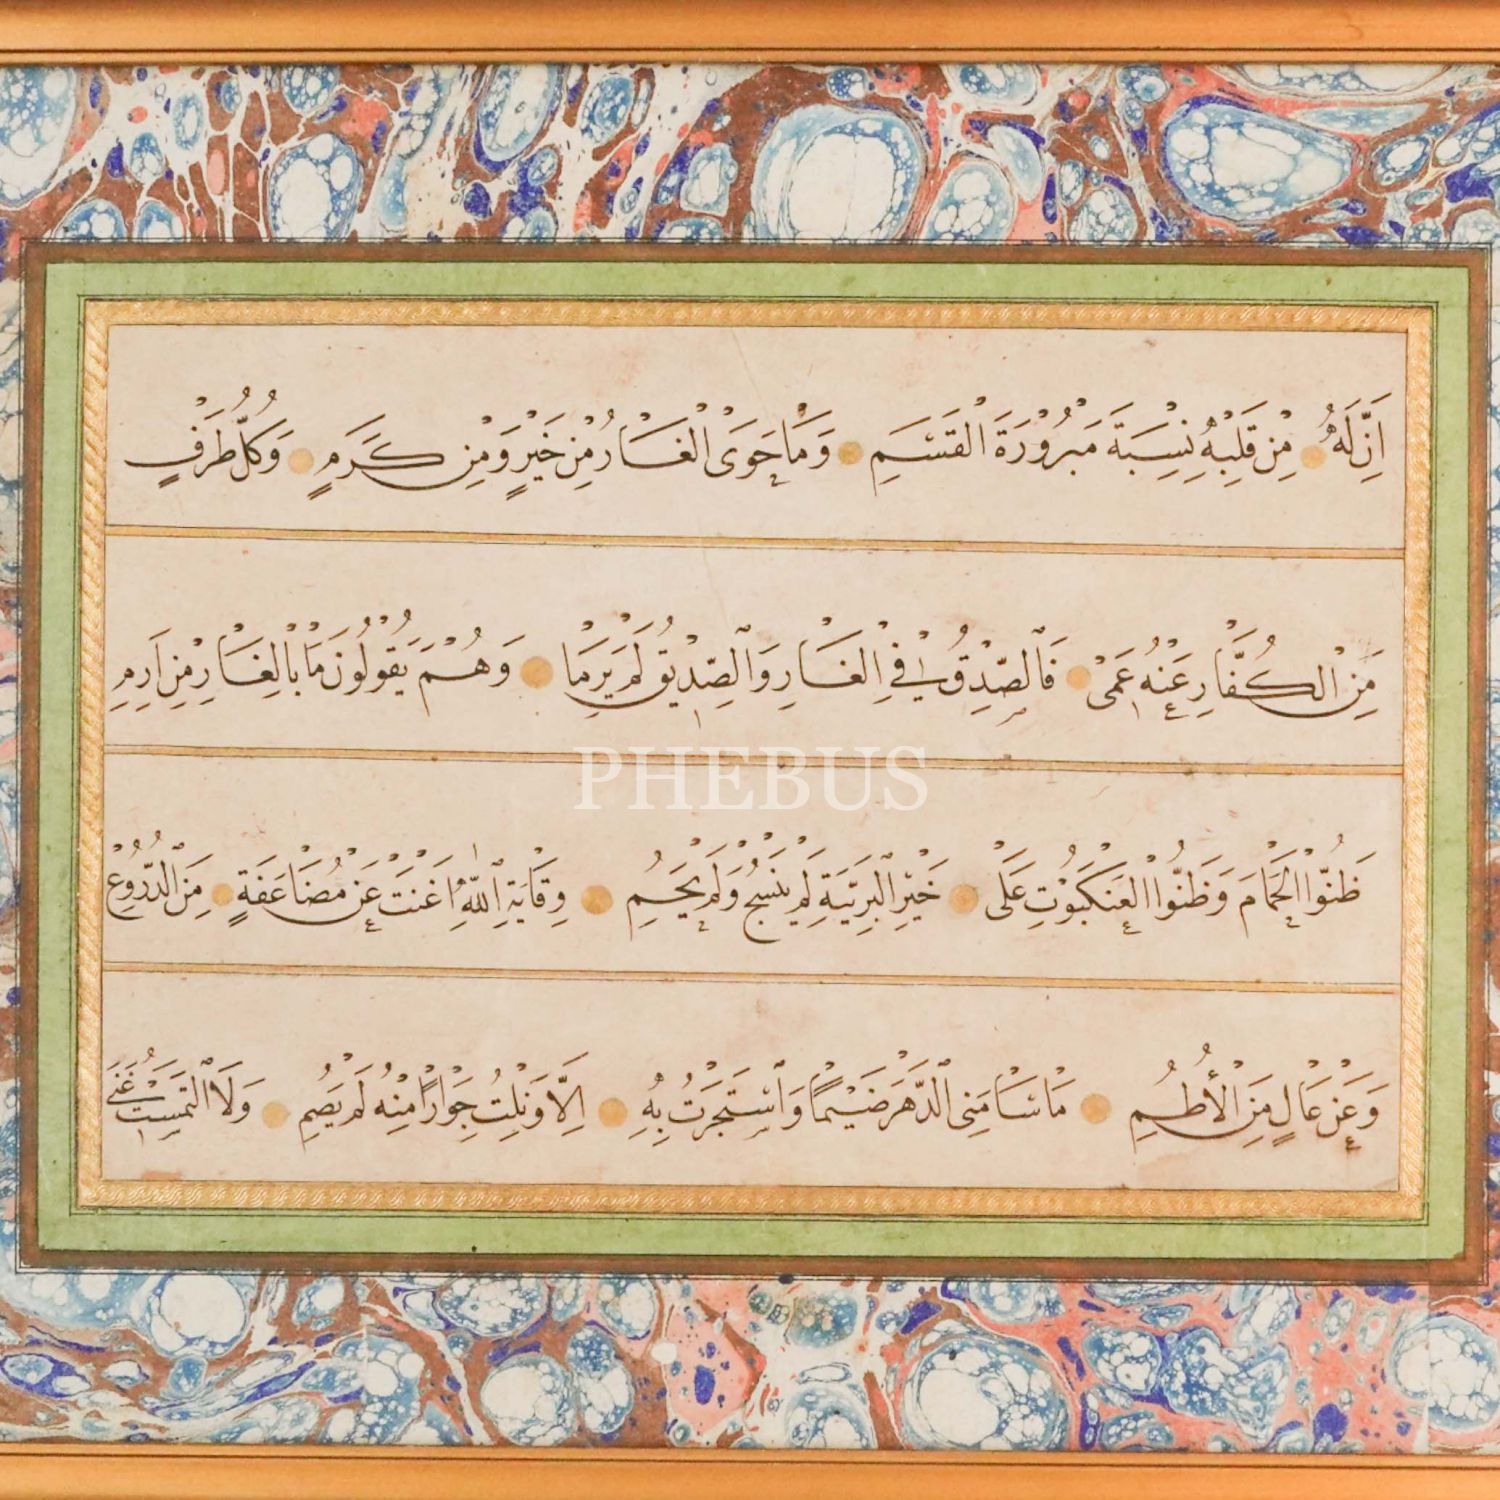 اَنَّ لَهُ مِنْ قَلْبِهٖ نِسْبَةً مَبْرُوْرَةَ الْقَسَمِ وَمَا حَوَى الْغَارُ مِنْ خَيْرٍ وَمِنْ كَرَمٍ وَكُلُّ طَرْفٍ
مِنَ الْكُفَّارِ عَنْهُ عَمِى فَالصِّدْقُ فِى الْغَارِ وَالصِّدِّيْقُ لَمْ يَرِمَا وَهُمْ يَقُوْلُوْنَ مَا بِالْغَارِ مِنْ اَرِمِ
ظَنُّوا الْحَمَامَ وَظَنُّوا الْعَنْكَبُوْتَ عَلٰى خَيْرِ الْبَرِيَّةِ لَمْ يَنْسُجْ وَلَمْ يَحُمِ وِقَايَةُ اللّٰهِ اَغْنَتْ عَنْ مُضَاعَفَةٍ مِنَ الدُّرُوْعِ
وَعَنْ عَالٍ مِنَ الْأُطُمِ مَا سَامَنِى الدَّهْرُ ضَيْمًا وَاسْتَجَرْتُ بِهٖ اِلَّا وَنِلْتُ جِوَارًا مِنْهُ لَمْ يُضَمِ وَلَا الْتَمَسْتُ غِنَى
PHEBUS